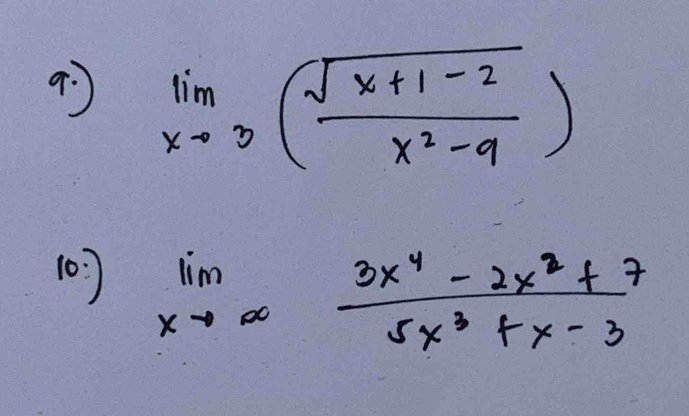 9.) lim x→3 (√(x+1-2) / (x²-9))
10.) lim x→∞ (3x⁴ - 2x² + 7) / (5x³ + x - 3)